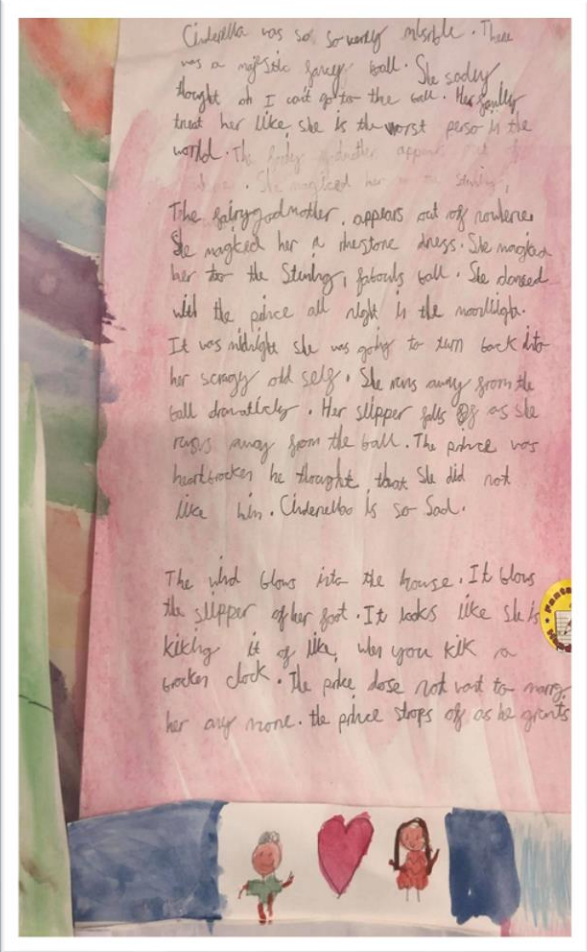 Cinderella was so so verey misrble. There
was a majestic fancy ball. She sadey
thought oh I can't go to the ball. Her family
treat her like she is the worst perso in the
world. The
. She magicked her
The fairygodmother appears out off nowlere.
She magked her a rhestone dress. She
her to the Stuning, fabouls ball. She danced
with the prince all night in the moonligh.
It was midnight she was going to turn back into
her scragy old self. She runs away from the
ball dramaticley. Her slipper falls off as she
runs away from the ball. The prince was
heartbrocken he thought that She did not
like him. Cinderella is so Sad.
The wind blows into the house. It blows
the slipper of her foot. It looks like she is
kiking it of like when you kik a
brocken clock. The prince dose not want to marry
her any more. the prince strops of as he grunts